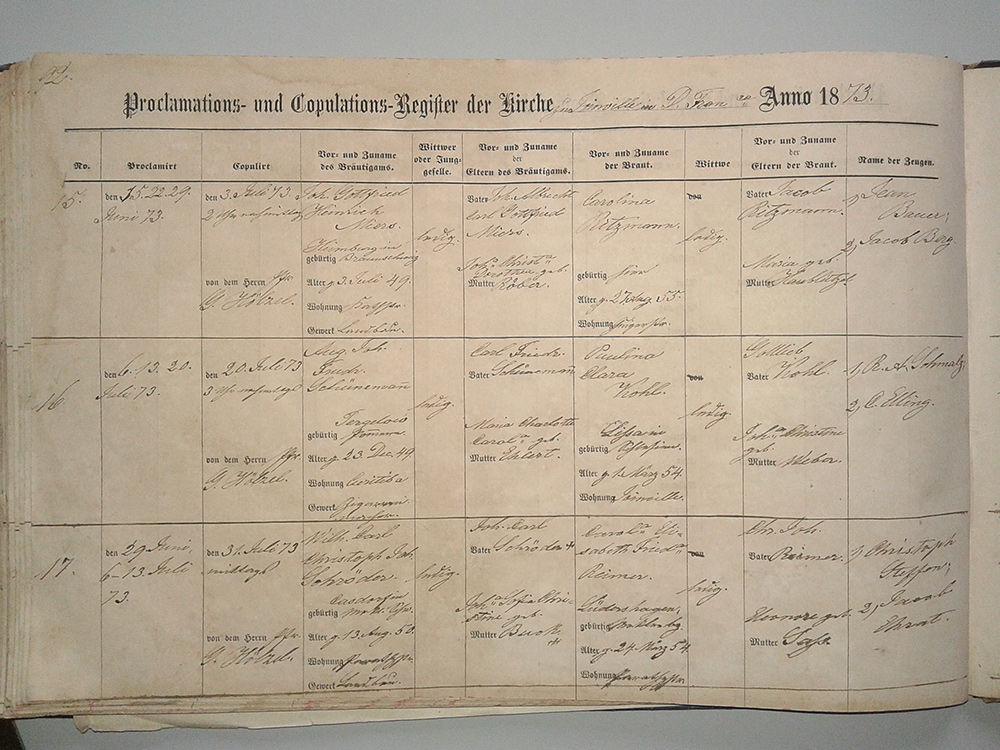 Proclamations- und Copulations-Register der Kirche zu Joinville in D. Fran ca Anno 1873.
No.
Proclamirt
Copulirt
Vor- und Zuname
des Bräutigams.
Wittwer
oder Jung-
geselle.
Vor- und Zuname
der
Eltern des Bräutigams.
Vor- und Zuname
der Braut.
Wittwe
Vor- und Zuname
der
Eltern der Braut.
Name der Zeugen.
15.
den 15. 22. 29.
Juni 73.
den 3. Juli 73
2 Uhr nachmittag
von dem Herrn Pfr.
G. Hölzel.
Joh. Gottfried
Heinrich
Miers.
Heimburg in
gebürtig Braunschweig
Alter g. 3. Juli 49.
Wohnung
Gewerk Landbau.
ledig.
Joh. Albrecht
Vater Carl Gottfried
Miers.
Joh.a Christ.a
Dorothea geb.
Mutter Röber.
Carolina
Ritzmann.
gebürtig hier
Alter g. 27 Aug. 55.
Wohnung
von
ledig.
Vater Jacob
Ritzmann.
Maria geb.
Mutter
1, Jean
Bauer;
2, Jacob Berg.
16
den 6. 13. 20.
Juli 73.
den 20. Juli 73
3 Uhr nachmittags
von dem Herrn Pfr.
G. Hölzel.
Aug. Joh.
Friedr.
Schünemann
gebürtig Pommern
Alter g. 23. Dec. 49
Wohnung Coritiba
Gewerk
ledig.
Carl Friedr.
Vater Schünemann
Maria Charlotte
Carol.a geb.
Mutter Ehlert.
Paulina
Clara
Kohl.
Lissa in
gebürtig
Alter g. 1. März 54.
Wohnung Joinville.
von
ledig.
Gottlieb
Vater Kohl.
Joh.a Christine
geb.
Mutter Weber.
1, R. A. Schmalz;
2, C. Elling.
17.
den 29 Juni,
6 - 13. Juli
73.
den 31. Juli 73
mittags
von dem Herrn Pfr.
G. Hölzel.
Wilh. Carl
Christoph Joh.
Schröder.
gebürtig
Alter g. 13. Aug. 50.
Wohnung
Gewerk Landbau.
ledig.
Joh. Carl
Vater Schröder +
Joh.a Sofia Chris-
tine geb.
Mutter Buck +
Carol.a Eli-
sabeth Fried.a
Reimer.
Lüdershagen,
gebürtig
Alter g. 24. März 54
Wohnung
von
ledig.
Chr. Joh.
Vater Reimer.
Eleonore geb.
Mutter
1, Christoph
Steffen;
2, Jacob